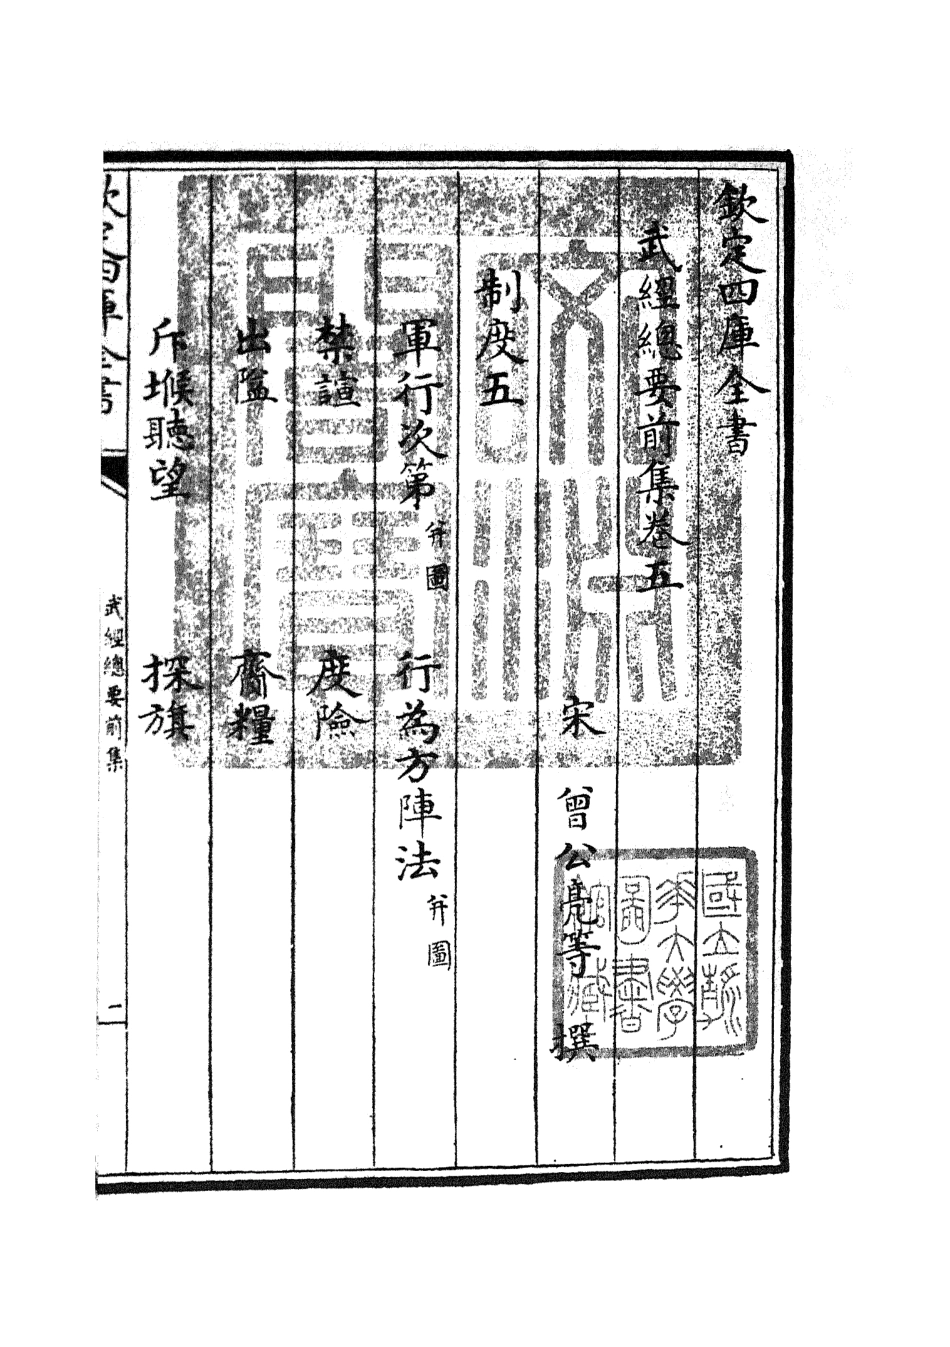 欽定四庫全書
武經總要前集卷五
宋 曾公亮等 撰
制度五
軍行次第 并圖 行為方陣法 并圖
禁諠 度險
出隘 齎糧
斥堠聽望 探旗
欽定四庫全書
武經總要前集
二
文淵閣寶
國立清華大學圖書館藏